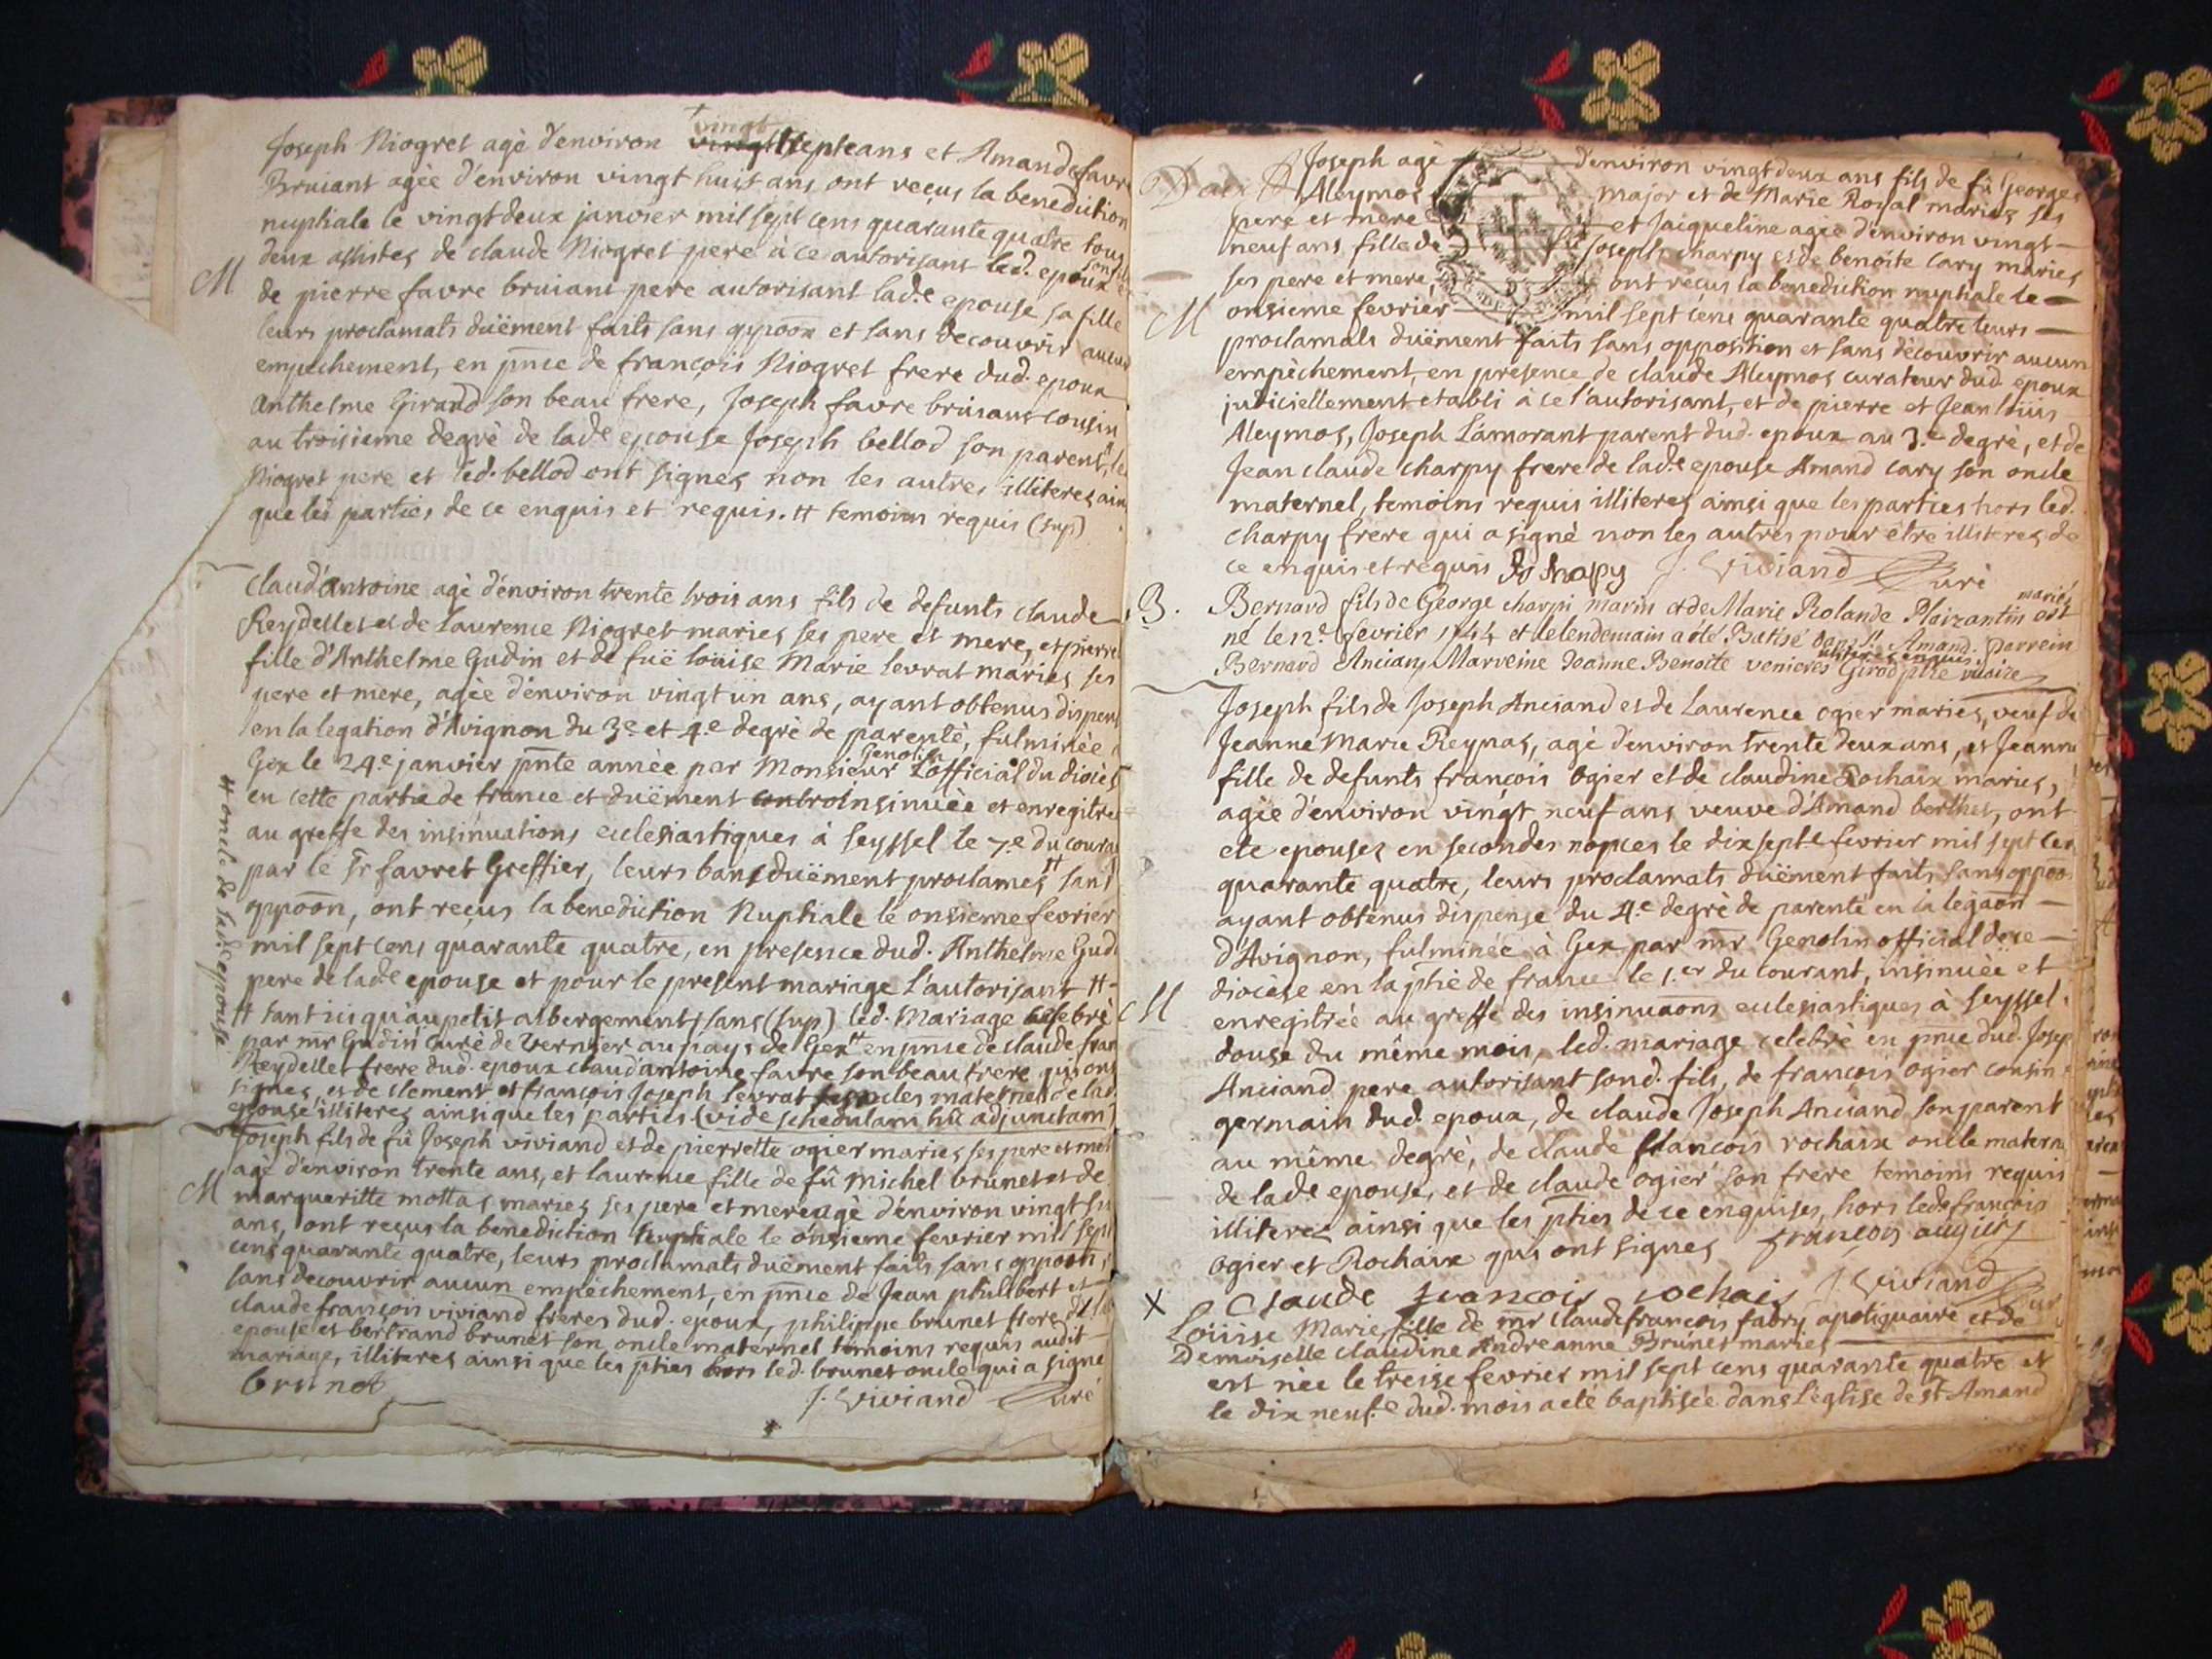 Joseph Niogret agè d'environ vingt septeans et Amande favre
Bruiant agèe d'environ vingt huit ans, ont reçus la benediction
nuptiale le vingtdeux janvier mil sept cens quarante quatre tous
deux assistes de claude Niogret pere à ce autorisant led. epoux son fils
de pierre favre bruiant pere autorisant lad.e epouse sa fille
leurs proclamats duëment faits sans oppoõn et sans decouvrir aucun
empechement, en pñce de françois Niogret frere dud. epoux
Anthelme Girand son beau frere, Joseph favre bruiant cousin
au troisieme degrè de lad.e epouse Joseph bellod son parent, # led.
Niogret pere et led. bellod ont signes non les autres illiteres ainsi
que les parties de ce enquis et requis. # temoins requis (sup)
M
Claud'antoine agè d'environ trente trois ans fils de defunts claude
Reydellet et de Laurence Niogret maries ses pere et mere, et pierre
fille d'Anthelme Gudin et de fuë loüise Marie levrat maries ses
pere et mere, agèe d'environ vingt un ans, ayant obtenus dispense
en la legation d'Avignon du 3.e et 4.e degrè de parentè, fulminèe à
Gex le 24.e janvier pñte annèe par Monsieur Genolin L'official du diocèse
en cette partie de france et duëment insinuèe et enregitrèe
au greffe des insinuations eclesiastiques à Seyssel le 7.e du courant
par le Sr favret Greffier, leurs bans duëment proclames # sans
oppoõn, ont reçus la benediction Nuptiale le onsieme fevrier
mil sept cens quarante quatre, en presence dud. Anthelme Gudin
pere de lad.e epouse et pour le present mariage L'autorisant #
# tant ici qu'au petit albergement, sans (sup) led. Mariage celebrè
par mr Gudin curè de Vernier au pays de Gex # en pñce de claude fran
Reydellet frere dud. epoux claud'antoine favre son beau frere qui ont
signes, et de clement et françois Joseph levrat oncles maternels de lad.
epouse illiteres ainsi que les parties (vide schedulam hic adjunctam)
# oncle de lad.e epouse
Joseph fils de fû Joseph viviand et de pierrette ogier maries ses pere et mere
agè d'environ trente ans, et laurence fille de fû Michel brunet et de
M
margueritte mottas maries ses pere et mere agè d'environ vingt six
ans, ont reçus la benediction nuptiale le onsieme fevrier mil sept
cens quarante quatre, leurs proclamats duëment faits sans oppoõn,
sans decouvrir aucun empèchement, en pñce de Jean philibert et
claude françois viviand freres dud. epoux, philippe brunet frere de lad.
epouse et bertrand brunet son oncle maternel temoins requis audit
mariage, illiteres ainsi que les pties hors led. brunet oncle qui a signe
brunet
J. Viviand Curè
Joseph agè d'environ vingt deux ans fils de fû George
Aleymos major et de Marie Royal maries ses
pere et mere et Jaiqueline agèe d'environ vingt
neuf ans fille de fû Joseph charpy et de benoite Cary maries
ses pere et mere, ont reçus la benediction nuptiale le
M
onsieme fevrier mil sept cens quarante quatre leurs
proclamats duëment faits sans opposition et sans dècouvrir aucun
empèchement, en presence de claude Aleymos curateur dud. epoux
judiciellement etabli à ce l'autorisant, et de pierre et Jean loüis
Aleymos, Joseph L'amorant parent dud. epoux au 3.e degrè, et de
Jean claude charpy frere de lad.e epouse Amand Cary son oncle
maternel, temoins requis illiteres ainsi que les parties hors led.
charpy frere qui a signè non les autres pour être illiteres de
ce enquis et requis J. Viviand Curè
B.
Bernard fils de George charpi marin et de Marie Rolande Plaizantin mariés est
né le 12.e fevrier 1744 et le lendemain a été Batisé dans St Amand. Parrein
Bernard Anciany Marreine Jeanne Benoite venieres illiteres enquis. Girod ptre vicaire
Joseph fils de Joseph Anciand et de Laurence ogier maries, veuf de
Jeanne Marie Reynas, agè d'environ trente deux ans, et Jeanne
fille de defunts françois Ogier et de claudine Rochaix maries,
agèe d'environ vingt neuf ans veuve d'Amand berthet, ont
ete epouses en secondes nopces le dix sept.e fevrier mil sept cens
quarante quatre, leurs proclamats duëment faits sans oppoõn
ayant obtenus dispense du 4.e degrè de parentè en la lègaõn
d'Avignon, fulminèe à Gex par mr Genolin official de ce
diocèse en la ptie de france le 1.er du courant, insinuèe et
M
enregitrèe au greffe des insinuaõns eclesiastiques à Seyssel
douse du même mois, led. mariage celebrè en pñce dud. Joseph
Anciand pere autorisant sond. fils, de françois ogier cousin
germain dud. epoux, de claude Joseph Anciand son parent
au même degrè, de claude françois rochaix oncle maternel
de lad.e epouse, et de claude ogier son frere temoins requis
illiteres ainsi que les pties de ce enquises, hors led. françois
Ogier et Rochaix qui ont signes françois augier
Claude francois rochais J. Viviand Curè
X
Loüise Marie fille de mr claude françois fabry apotiquaire et de
Demoiselle claudine Andreanne Brunet maries
est nèe le treise fevrier mil sept cens quarante quatre et
le dix neuf.e dud. mois a etè baptisèe dans l'èglise de st Amand